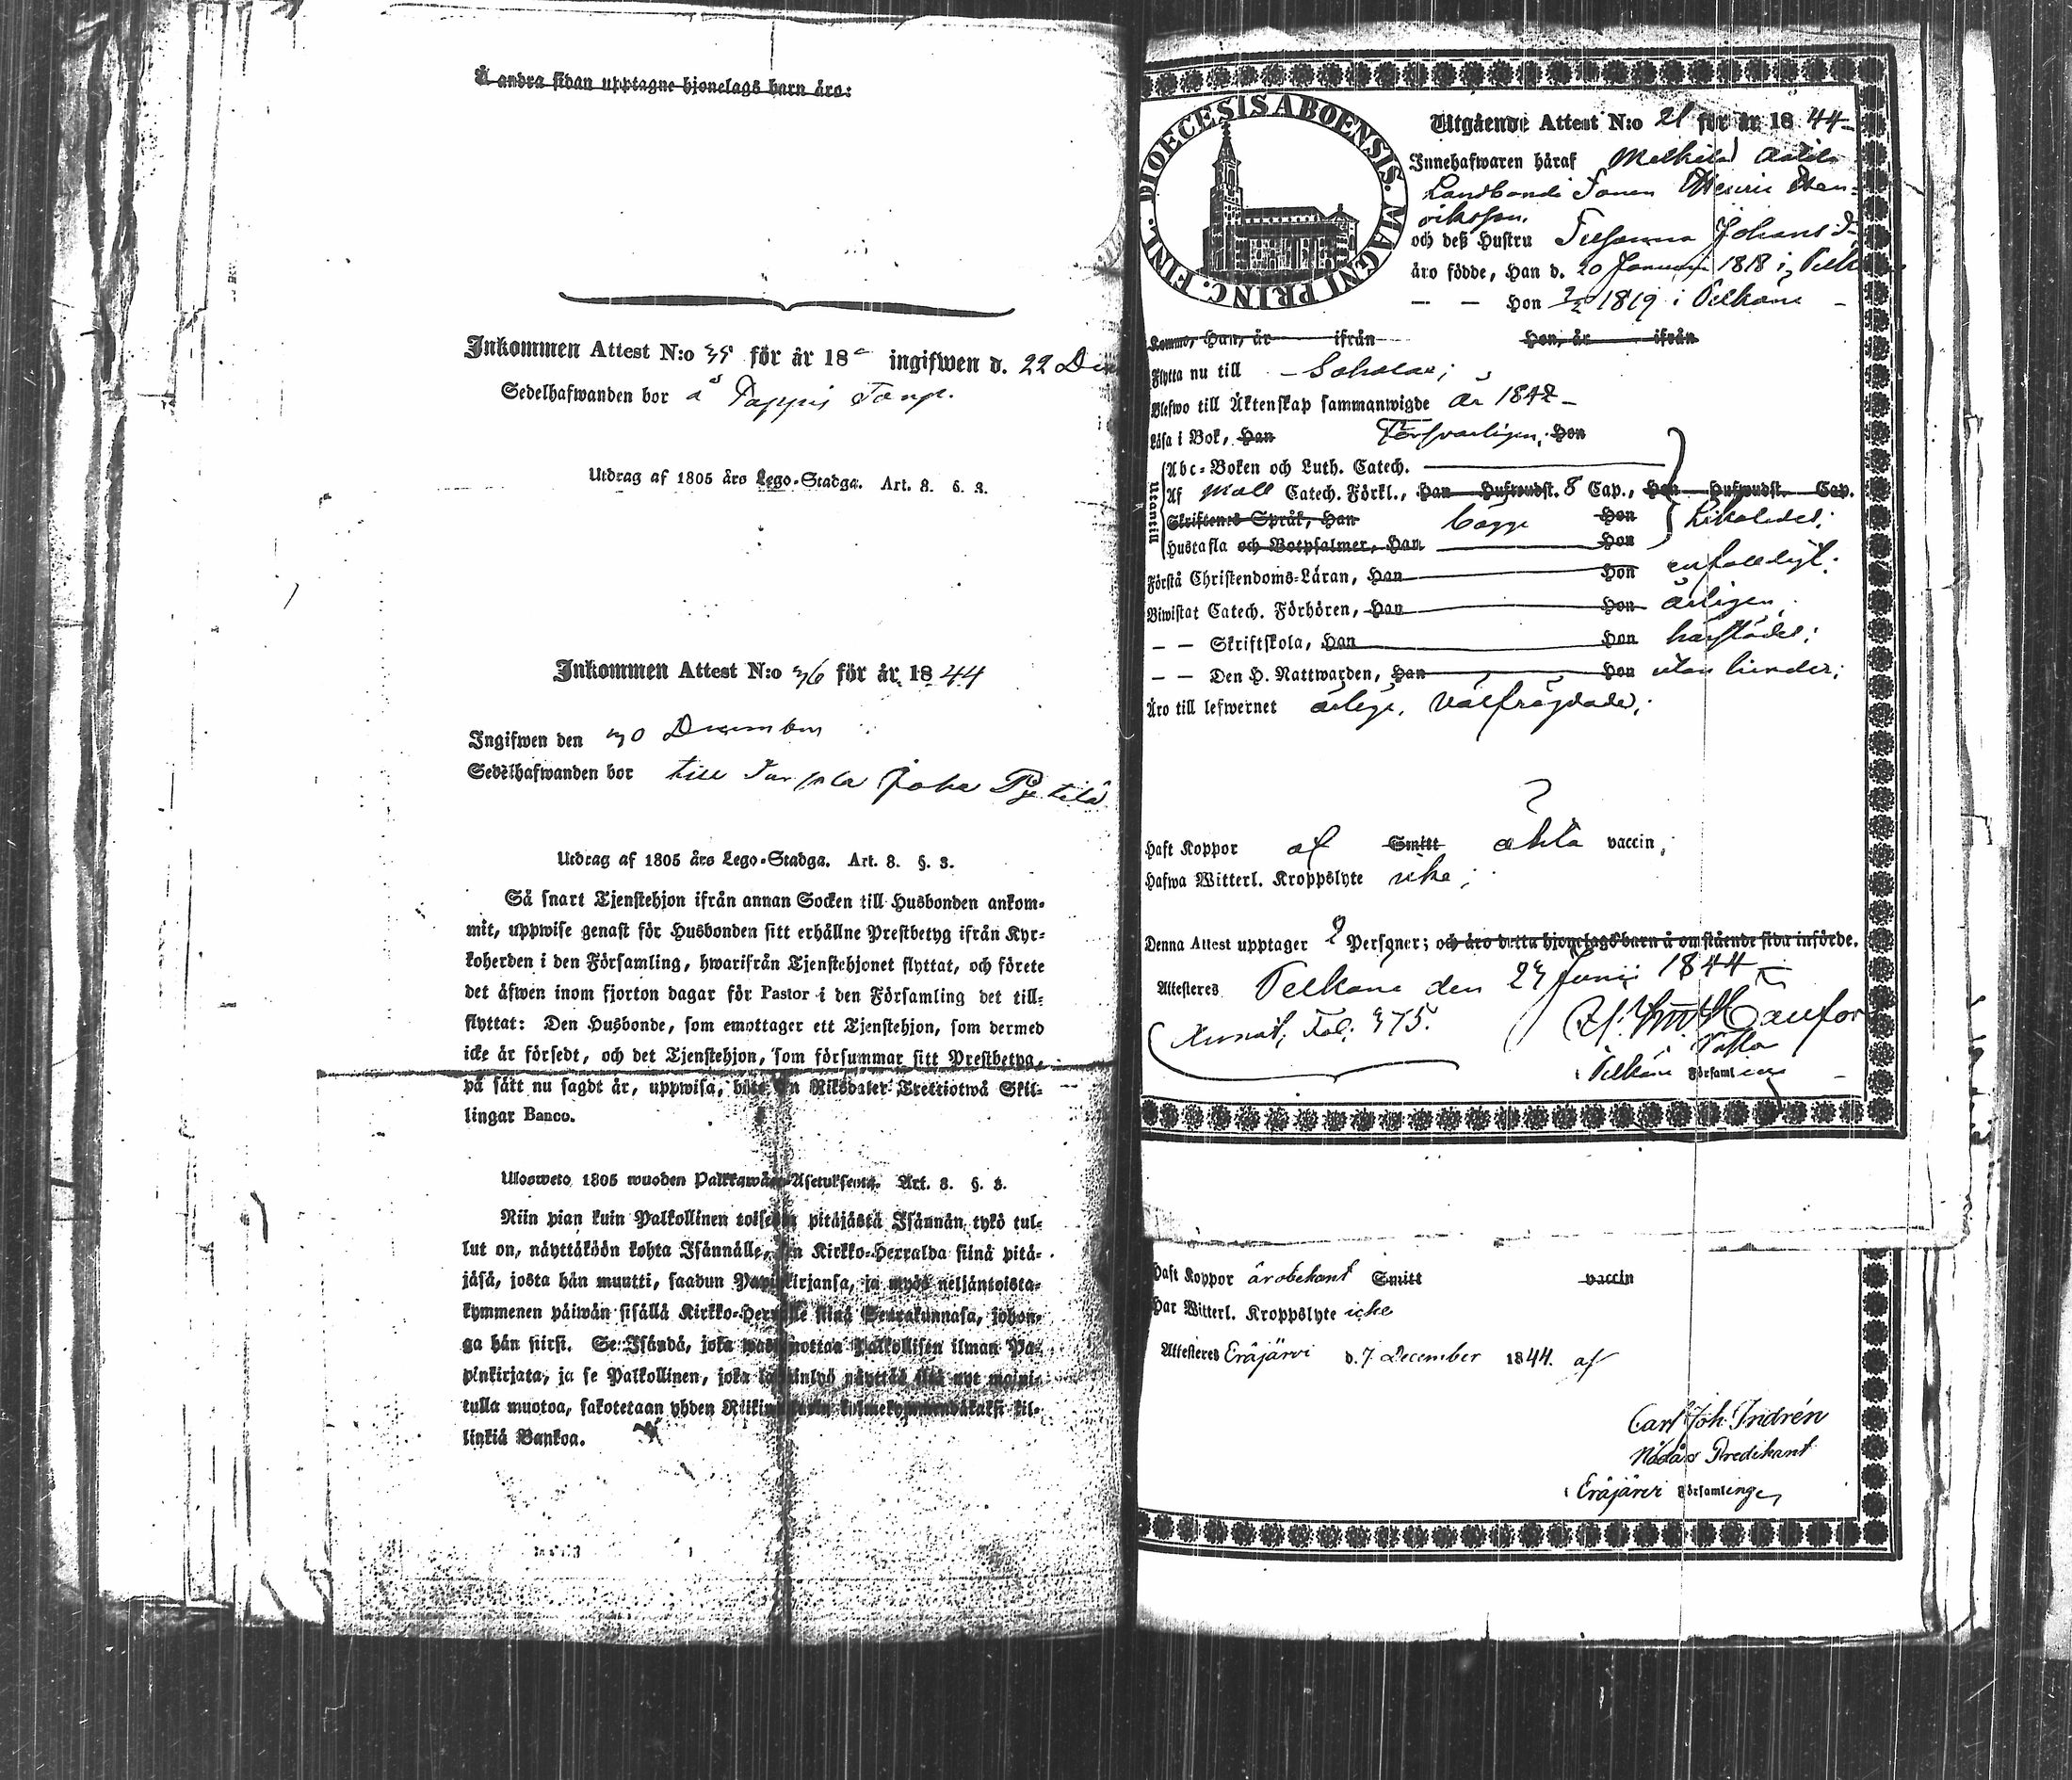 Å andra sidan upptagne hjonelags barn äro:
Inkommen Attest N:o 35 för år 18 ingifwen d. 22 Dec
Sedelhafwanden bor å Pappis Torp.
Utdrag af 1805 års Lego-Stadga. Art. 8. §. 3.
Inkommen Attest N:o 36 för år 1844
Ingifwen den 30 December
Sedelhafwanden bor till
Utdrag af 1805 års Lego-Stadga. Art. 8. §. 3.
Så snart Tjenstehjon ifrån annan Socken till Husbonden ankom-
mit, uppwise genast för Husbonden sitt erhållne Prestbetyg ifrån Kyr-
koherden i den Församling, hwarifrån Tjenstehjonet flyttat, och förete
det äfwen inom fjorton dagar för Pastor i den Församling det till-
flyttat: Den Husbonde, som emottager ett Tjenstehjon, som dermed
icke är försedt, och det Tjenstehjon, som försummar sitt Prestbetyg,
på sätt nu sagdt är, uppwisa, böte en Riksdaler Trettiotwå Skil-
lingar Banco.
Ulosweto 1805 wuoden Palkkawäen-Asetuksesta. Art. 8. §. 3.
Niin pian kuin Palkollinen toisesta pitäjästä Isännän tykö tul-
lut on, näyttäköön kohta Isännälle, sen Kirkko-Herralda siinä pitä-
jäsä, josta hän muutti, saadun Papinkirjansa, ja myös neljäntoista-
kymmenen päiwän sisällä Kirkko-Herralle siinä Seurakunnasa, johon-
ga hän siirsi. Se Isändä, joka wastanottaa Palkollisen ilman Pa-
pinkirjata, ja se Palkollinen, joka laiminlyö näyttää sitä nyt maini-
tulla muotoa, sakotetaan yhden Riikin kolmekymmendäkaksi kil-
linkiä Bankoa.
DIOECESIS ABOENSIS. MAGNI PRINC. FINL.
Utgående Attest N:o 21 för år 1844
Innehafwaren häraf
Landbonde Sonen Henric Hen-
riksson
och dess Hustru Susanna Johansd:r
äro födde, Han d. 20 Januari 1818 i Pelkäne
— — Hon 1819 i Pelkäne
Komme, Han, år ifrån Hon, år ifrån
Flytta nu till Sahalax;
Blefwo till Äktenskap sammanwigde år 1842
Läsa i Bok, Han Försvarligen, Hon
Utantill
Abc-Boken och Luth. Catech.
Af Möll Catech. Förkl., Han Hufwudst. 8 Cap., Hon Hufwudst. Cap.
Skriftenes Språk, Han Hon likaledes;
Hustafla och Botpsalmer, Han Hon
Förstå Christendoms-Läran, Han Hon enfaldigt;
Biwistat Catech. Förhören, Han Hon årligen,
— — Skriftskola, Han Hon härstädes;
— — Den H. Nattwarden, Han Hon utan hinder;
Äro till lefwernet ärliga, välfrägdade;
Haft Koppor af Smitt äkta vaccin;
Hafwa Witterl. Kroppslyte icke;
Denna Attest upptager 2 Personer; och äro detta hjonelags barn å omstående sida införde.
Attesteras Pelkäne den 27 Junii 1844
Fol. 375.
i Pelkäne Församling
Haft Koppor är obekant Smitt vaccin
Har Witterl. Kroppslyte icke
Attesteras Eräjärvi d. 7 December 1844. af
Carl Joh. Indrén
Nådårs Predikant
i Eräjärvi Församlinge